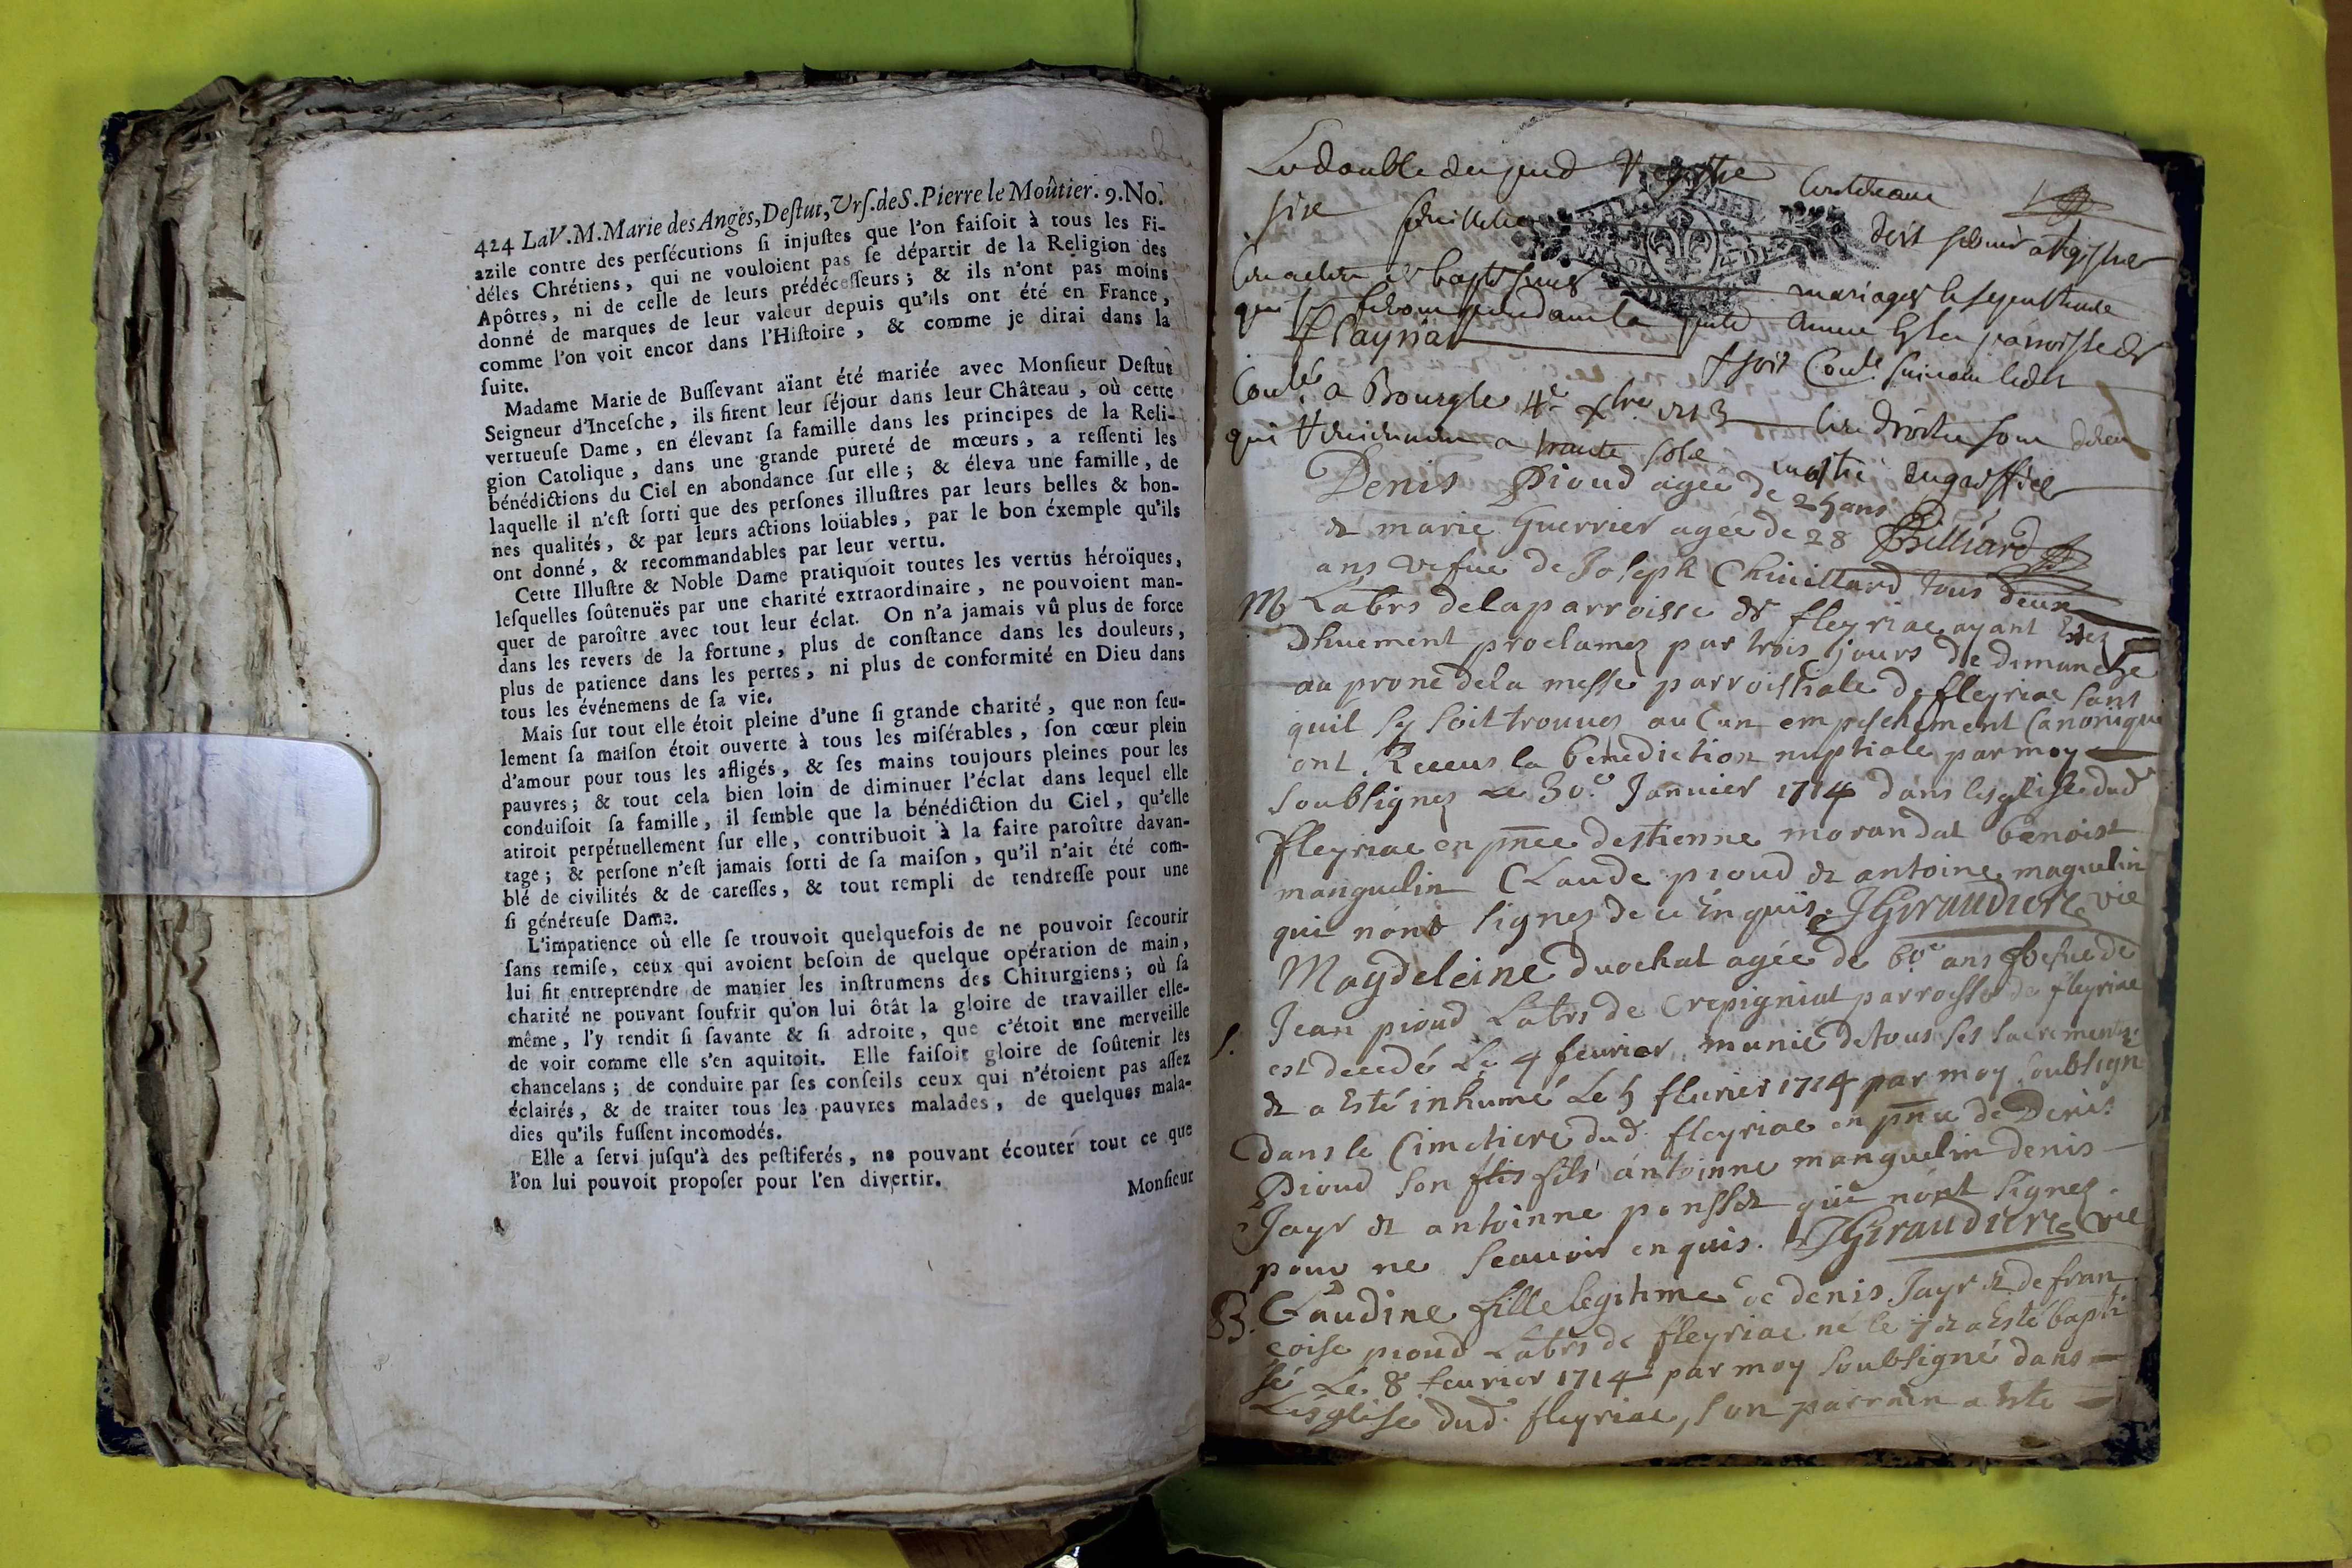 424 LaV.M.Marie des Anges,Deſtut,Urſ.deS.Pierre le Moûtier.9.No.
azile contre des perſécutions ſi injuſtes que l'on faiſoit à tous les Fi-
déles Chrétiens, qui ne vouloient pas ſe départir de la Religion des
Apôtres, ni de celle de leurs prédéceſſeurs; & ils n'ont pas moins
donné de marques de leur valeur depuis qu'ils ont été en France,
comme l'on voit encor dans l'Hiſtoire, & comme je dirai dans la
ſuite.
Madame Marie de Buſſevant aïant été mariée avec Monſieur Deſtut
Seigneur d'Inceſche, ils firent leur ſéjour dans leur Château, où cette
vertueuſe Dame, en élevant ſa famille dans les principes de la Reli-
gion Catolique, dans une grande pureté de mœurs, a reſſenti les
bénédictions du Ciel en abondance ſur elle; & éleva une famille, de
laquelle il n'eſt ſorti que des perſones illuſtres par leurs belles & bon-
nes qualités, & par leurs actions loüables, par le bon éxemple qu'ils
ont donné, & recommandables par leur vertu.
Cette Illuſtre & Noble Dame pratiquoit toutes les vertus héroïques,
leſquelles ſoûtenuës par une charité extraordinaire, ne pouvoient man-
quer de paroître avec tout leur éclat. On n'a jamais vû plus de force
dans les revers de la fortune, plus de conſtance dans les douleurs,
plus de patience dans les pertes, ni plus de conformité en Dieu dans
tous les événemens de ſa vie.
Mais ſur tout elle étoit pleine d'une ſi grande charité, que non ſeu-
lement ſa maiſon étoit ouverte à tous les miſérables, ſon cœur plein
d'amour pour tous les afligés, & ſes mains toujours pleines pour les
pauvres; & tout cela bien loin de diminuer l'éclat dans lequel elle
conduiſoit ſa famille, il ſemble que la bénédiction du Ciel, qu'elle
atiroit perpétuellement ſur elle, contribuoit à la faire paroître davan-
tage; & perſone n'eſt jamais ſorti de ſa maiſon, qu'il n'ait été com-
blé de civilités & de careſſes, & tout rempli de tendreſſe pour une
ſi généreuſe Dame.
L'impatience où elle ſe trouvoit quelquefois de ne pouvoir ſecourir
ſans remiſe, ceux qui avoient beſoin de quelque opération de main,
lui fit entreprendre de manier les inſtrumens des Chirurgiens; où ſa
charité ne pouvant ſoufrir qu'on lui ôtât la gloire de travailler elle-
même, l'y rendit ſi ſavante & ſi adroite, que c'étoit une merveille
de voir comme elle s'en aquitoit. Elle faiſoit gloire de ſoûtenir les
chancelans; de conduire par ſes conſeils ceux qui n'étoient pas aſſez
éclairés, & de traiter tous les pauvres malades, de quelques mala-
dies qu'ils fuſſent incomodés.
Elle a ſervi juſqu'à des peſtiferés, ne pouvant écouter tout ce que
l'on lui pouvoit propoſer pour l'en divertir.
Monſieur
Le double du
six feuillets
baptesmes mariages
pendant la année parroisse de
fleyria
a Bourg le 4e xbre 1713
qui
Denis Pioud agée de 25 ans
& marie Guerrier agée de 28 Billiard
ans vefue de Joseph Chuillard tous deux
M Labrs de la parroisse de fleyriac ayant Estez
Dhuement proclamez par trois jours de dimanche
au prone de la messe parroissiale de fleyriac sans
quil sy soit trouues auCun empeschement Canonique
ont Receus la benediction nuptiale par moy
soubsignez Le 30e Januier 1714 dans lesglise dud
fleyriac en pnce destienne morandat benoist
manguelin Claude pioud & antoine maguelin
qui nont signez de ce Enquis. JGiraudiere vic
Magdeleine duochat agée de 60e ans vefue de
Jean pioud Labrs de Crepigniat parroisse de fleyriac
S. est decedé Le 4 feurier, munie de tous ses sacrements
& a Esté inhumé Le 5 feurier 1714 par moy soubsign
dans le Cimetiere dud. fleyriac en pnce de Denis
Pioud son fils antoinne manguelin denis
Jayr & antoinne ponsset qui nont signez
pour ne scauoir enquis. JGiraudiere vic
B. Claudine fille legitime de denis Jayr & de fran
coise pioud Labrs de fleyriac né le 7 & a Esté bapti
sé Le 8 feurier 1714 par moy soubsigné dans
Lesglise dud. fleyriac, son parrain a Esté